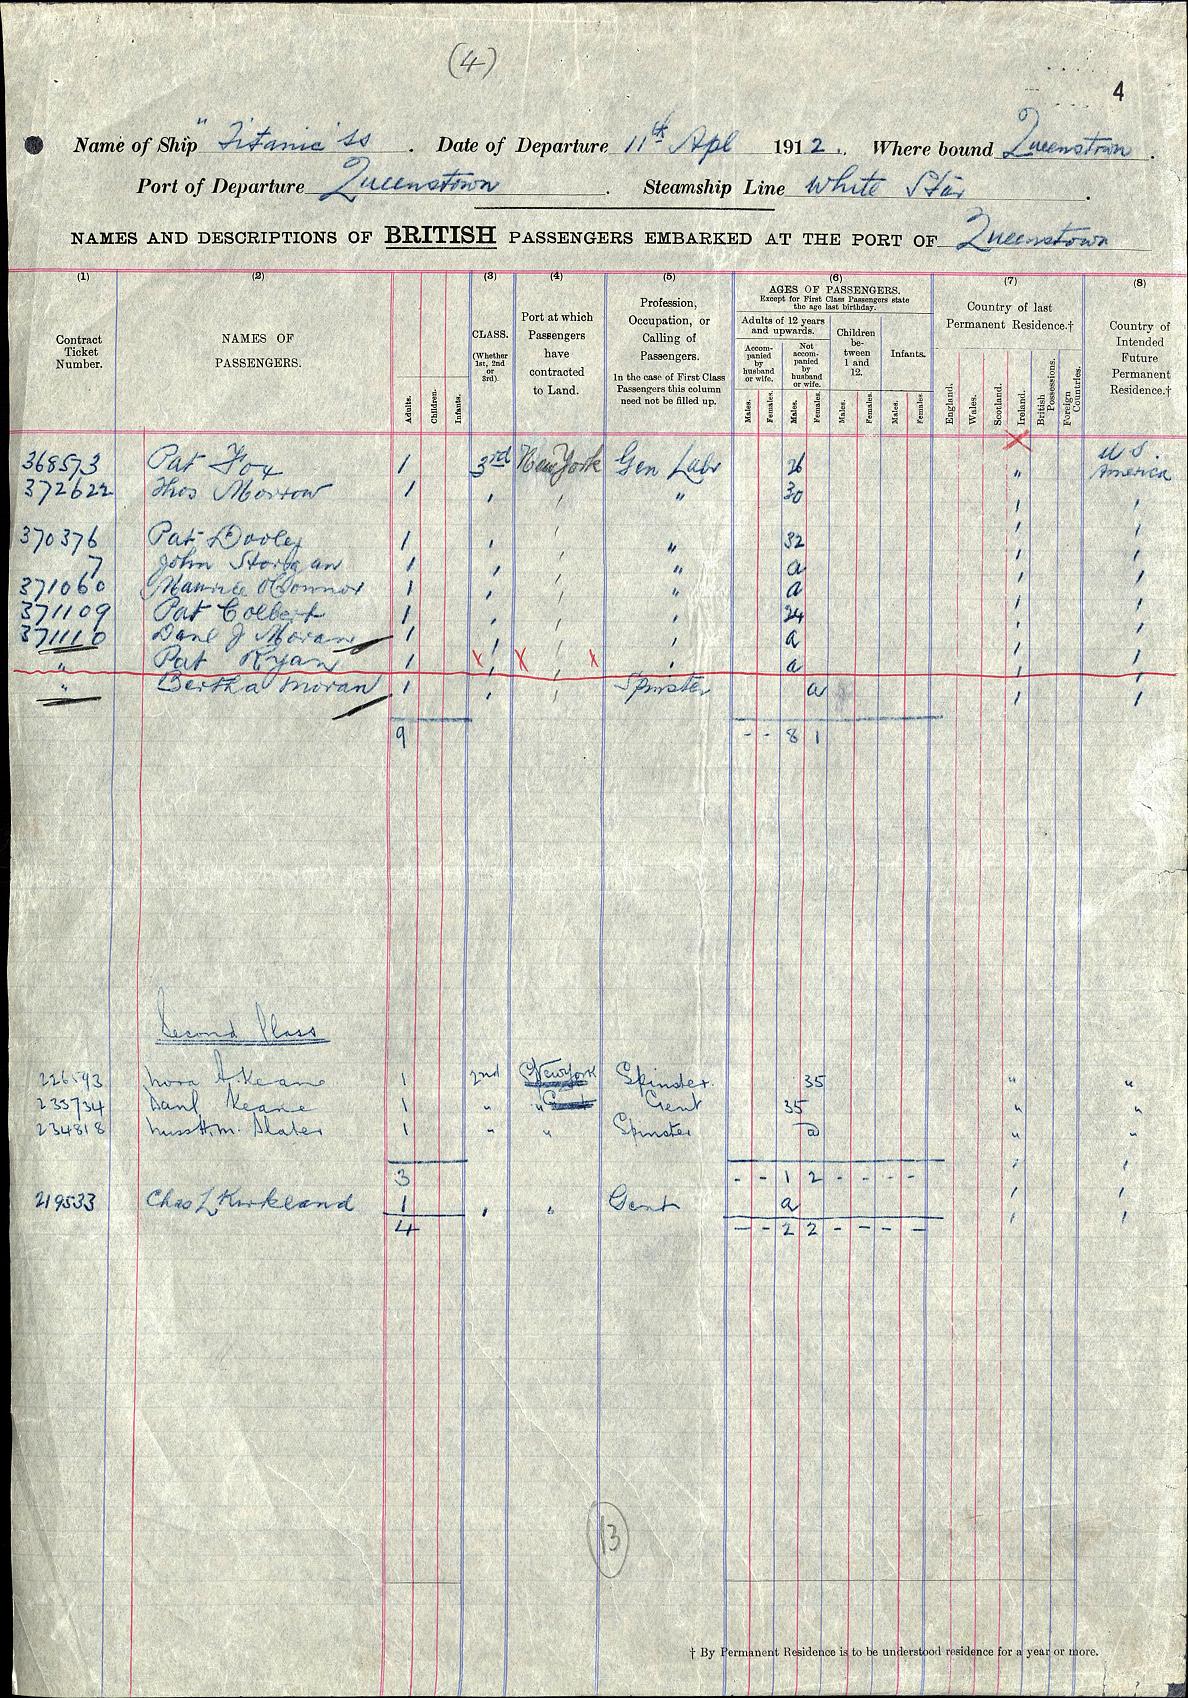 (4)
4
Name of Ship "Titanic" ss. Date of Departure 11th Apl 1912. Where bound Queenstown.
Port of Departure Queenstown. Steamship Line White Star.
NAMES AND DESCRIPTIONS OF BRITISH PASSENGERS EMBARKED AT THE PORT OF Queenstown
(1) (2) (3) (4) (5) (6) (7) (8)
Contract Ticket Number.
NAMES OF PASSENGERS.
Adults. Children. Infants.
CLASS. (Whether 1st, 2nd or 3rd).
Port at which Passengers have contracted to Land.
Profession, Occupation, or Calling of Passengers.
In the case of First Class Passengers this column need not be filled up.
AGES OF PASSENGERS.
Except for First Class Passengers state the age last birthday.
Adults of 12 years and upwards.
Accompanied by husband or wife.
Not accompanied by husband or wife.
Children between 1 and 12.
Infants.
Males. Females. Males. Females. Males. Females. Males. Females.
Country of last Permanent Residence.†
England. Wales. Scotland. Ireland. British Possessions. Foreign Countries.
Country of Intended Future Permanent Residence.†
X
368573 Pat Fox 1 3rd New York Gen Labr 26 " U.S. America
372622 Thos Morrow 1 " " " 30 " "
370376 Pat Dooley 1 " " " 32 " "
7 John Storgan 1 " " " a " "
371060 Maurice O'Connor 1 " " " a " "
371109 Pat Colbert 1 " " " 24 " "
371110 Danl J Moran 1 " " " a " "
" Pat Ryan 1 X X X " a " "
" Bertha Moran 1 " " Spinster a " "
9 - - 8 1
Second Class
226593 Nora A. Keane 1 2nd New York Spinster. 35 " "
233734 Danl Keane 1 " " Gent 35 " "
234818 Miss H.M. Slater 1 " " Spinster a " "
3 - - 1 2 - - - -
219533 Chas L Kirkland 1 " " Gent a " "
4 - - 2 2 - - - -
13
† By Permanent Residence is to be understood residence for a year or more.